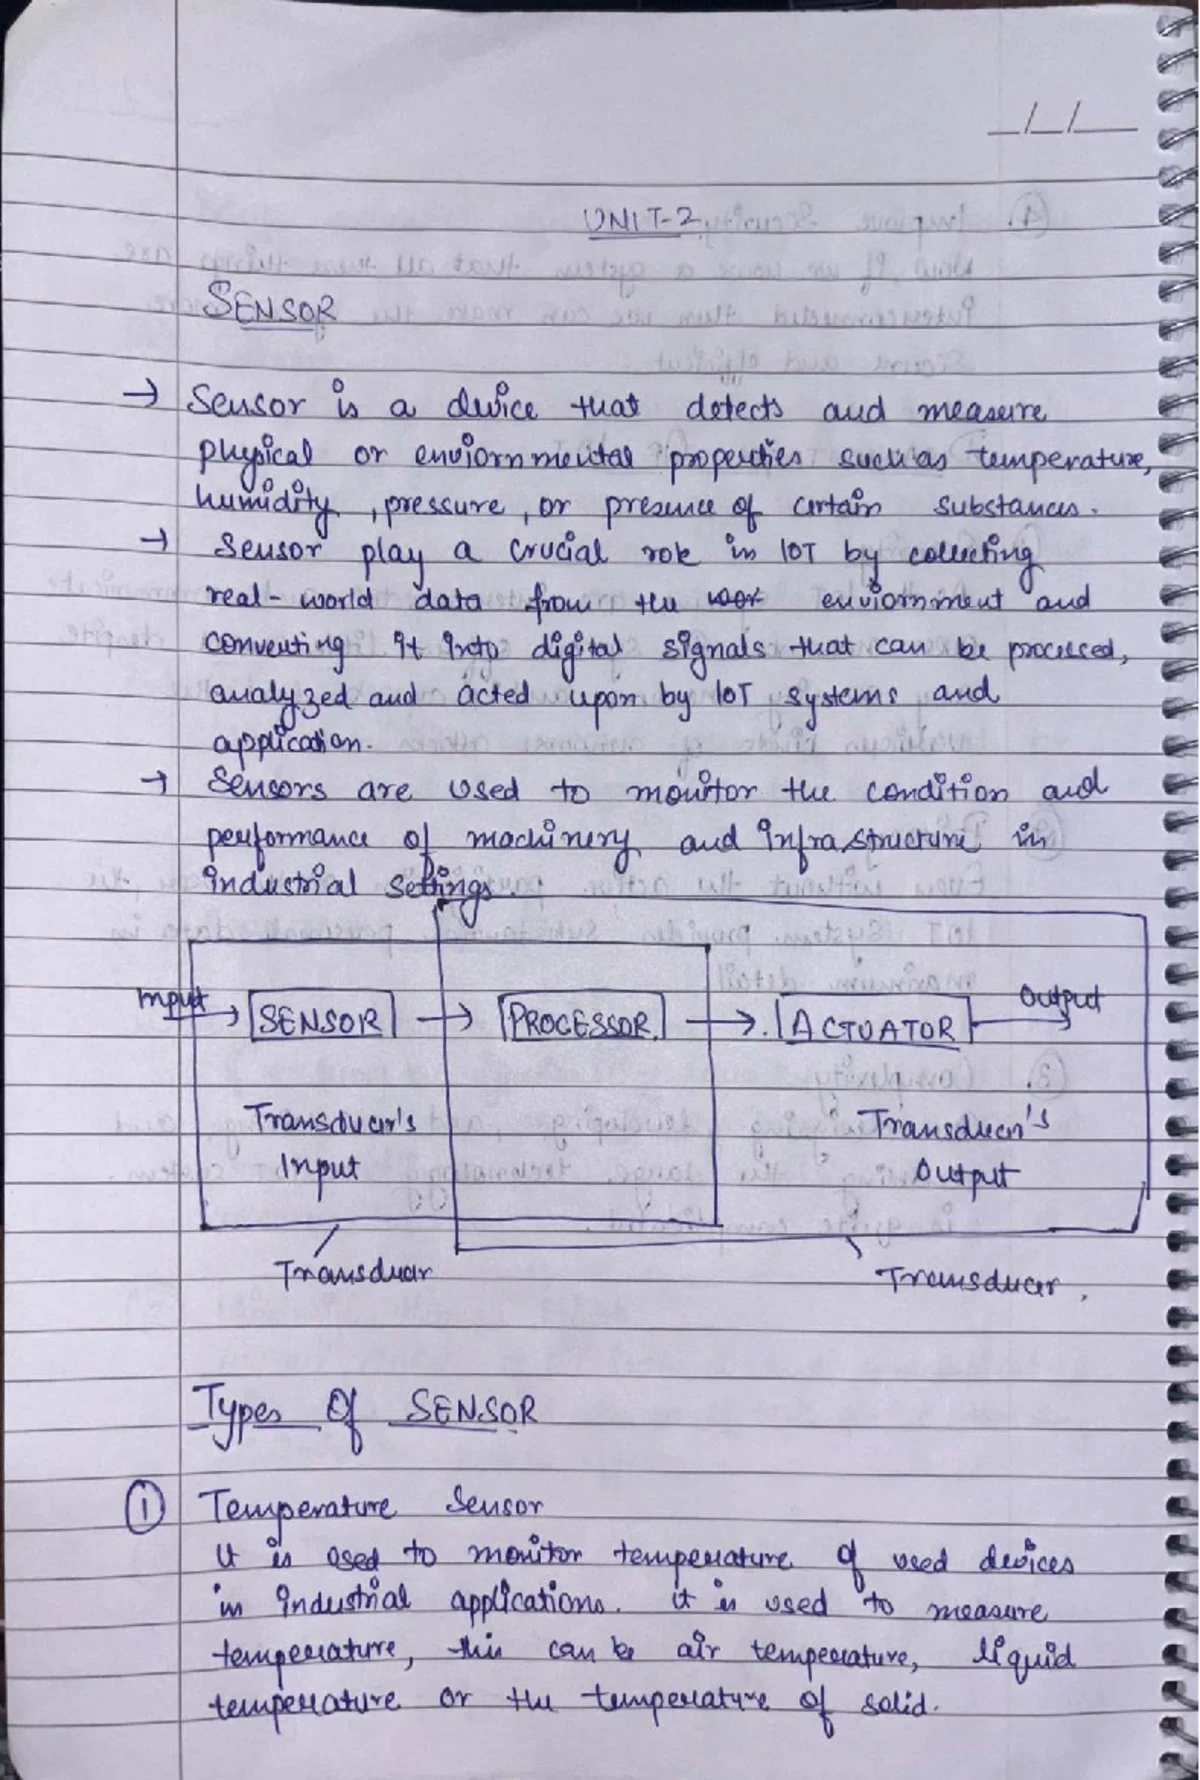 _/_/__
UNIT-2
SENSOR
→ Sensor is a device that detects and measure
physical or enviornmental properties such as temperature,
humidity, pressure, or presence of certain substances.
→ Sensor play a crucial role in IOT by collecting
real-world data from the enviornment and
converting it into digital signals that can be processed,
analyzed and acted upon by IOT systems and
application.
→ Sensors are used to monitor the condition and
performance of machinery and infrastructure in
industrial settings.
Input → SENSOR → PROCESSOR → ACTUATOR Output
Transducer's Transducer's
Input Output
Transducer Transducer.
Types Of SENSOR
① Temperature Sensor
It is used to monitor temperature of used devices
in industrial applications. it is used to measure
temperature, this can be air temperature, liquid
temperature or the temperature of solid.